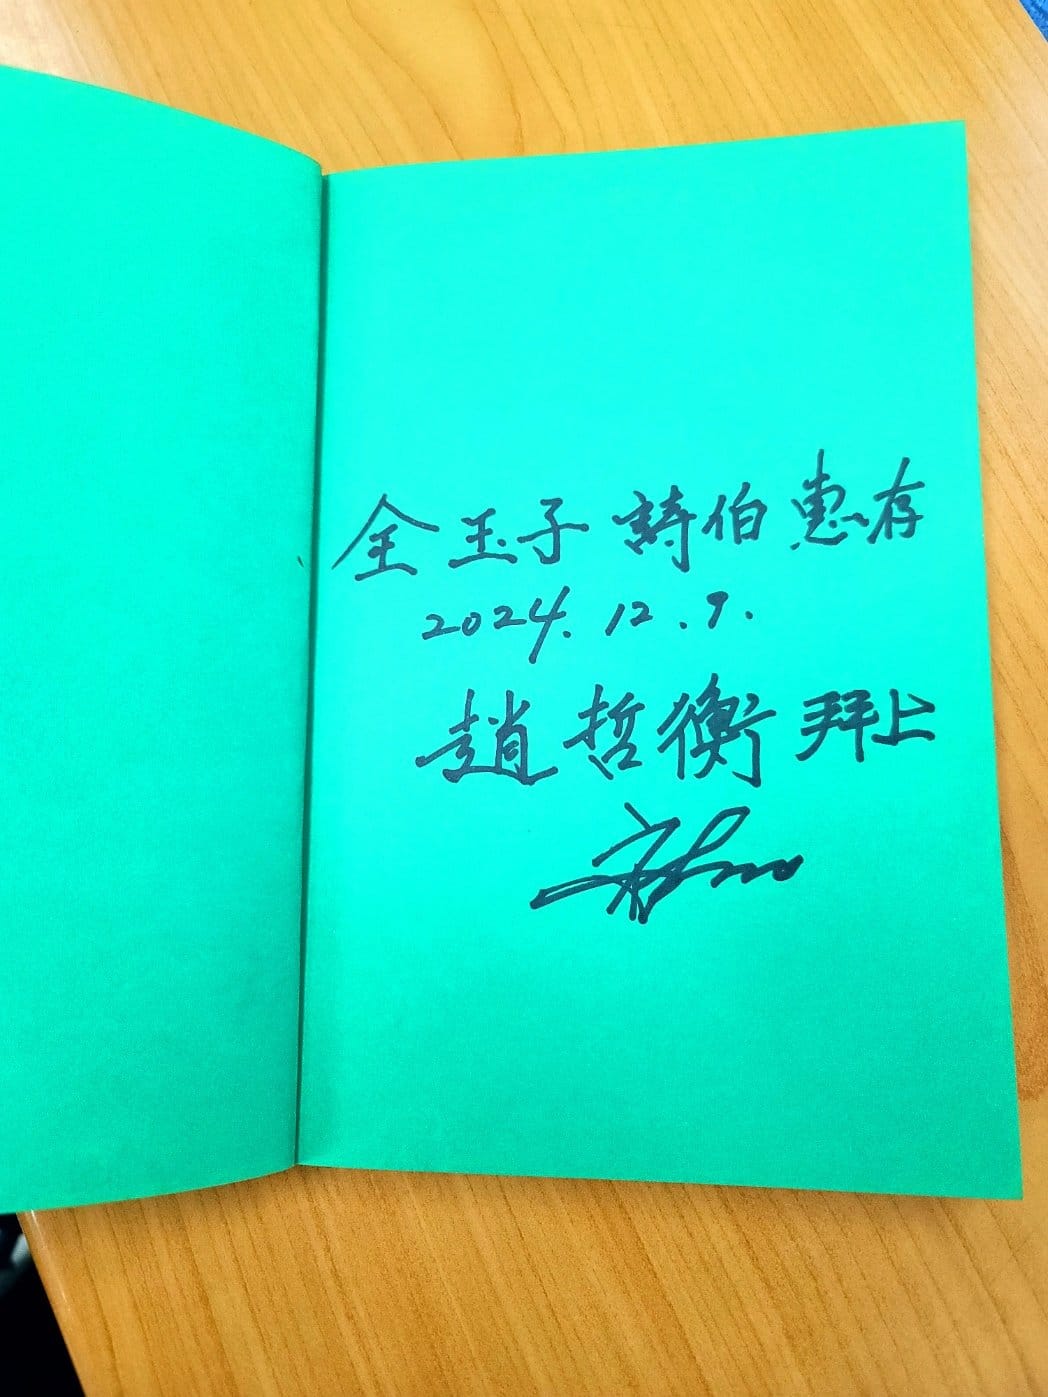 全玉子 詩伯 惠存
2024. 12. 7.
趙哲衡 拜上